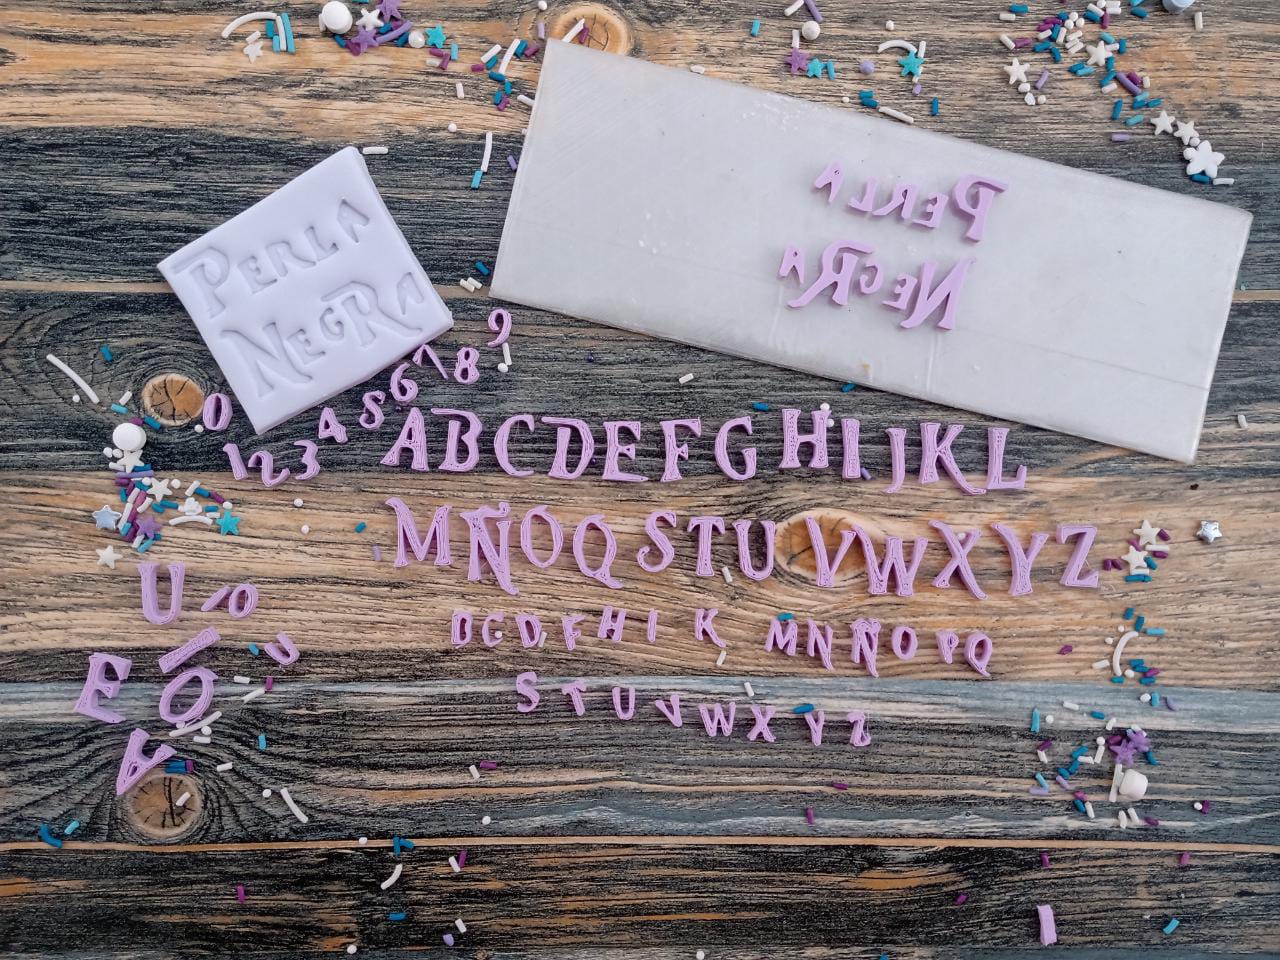 PERLA
NEGRA
PERLA
NEGRA
0 1 2 3 4 5 6 7 8 9
A B C D E F G H I J K L
M Ñ O Q S T U V W X Y Z
B C D F H I K M N Ñ O P Q
S T U V W X Y Z
U O
U
E O
A